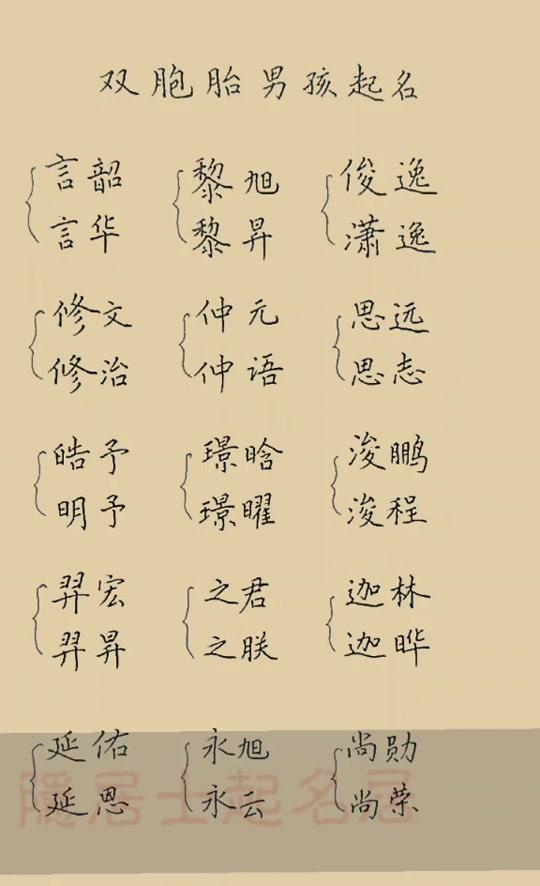 双胞胎男孩起名
言韶 黎旭 俊逸
言华 黎昇 潇逸
修文 仲元 思远
修治 仲语 思志
皓予 璟晗 浚鹏
明予 璟曜 浚程
羿宏 之君 迦林
羿昇 之朕 迦晔
延佑 永旭 尚勋
延恩 永云 尚荣
隱居士起名居